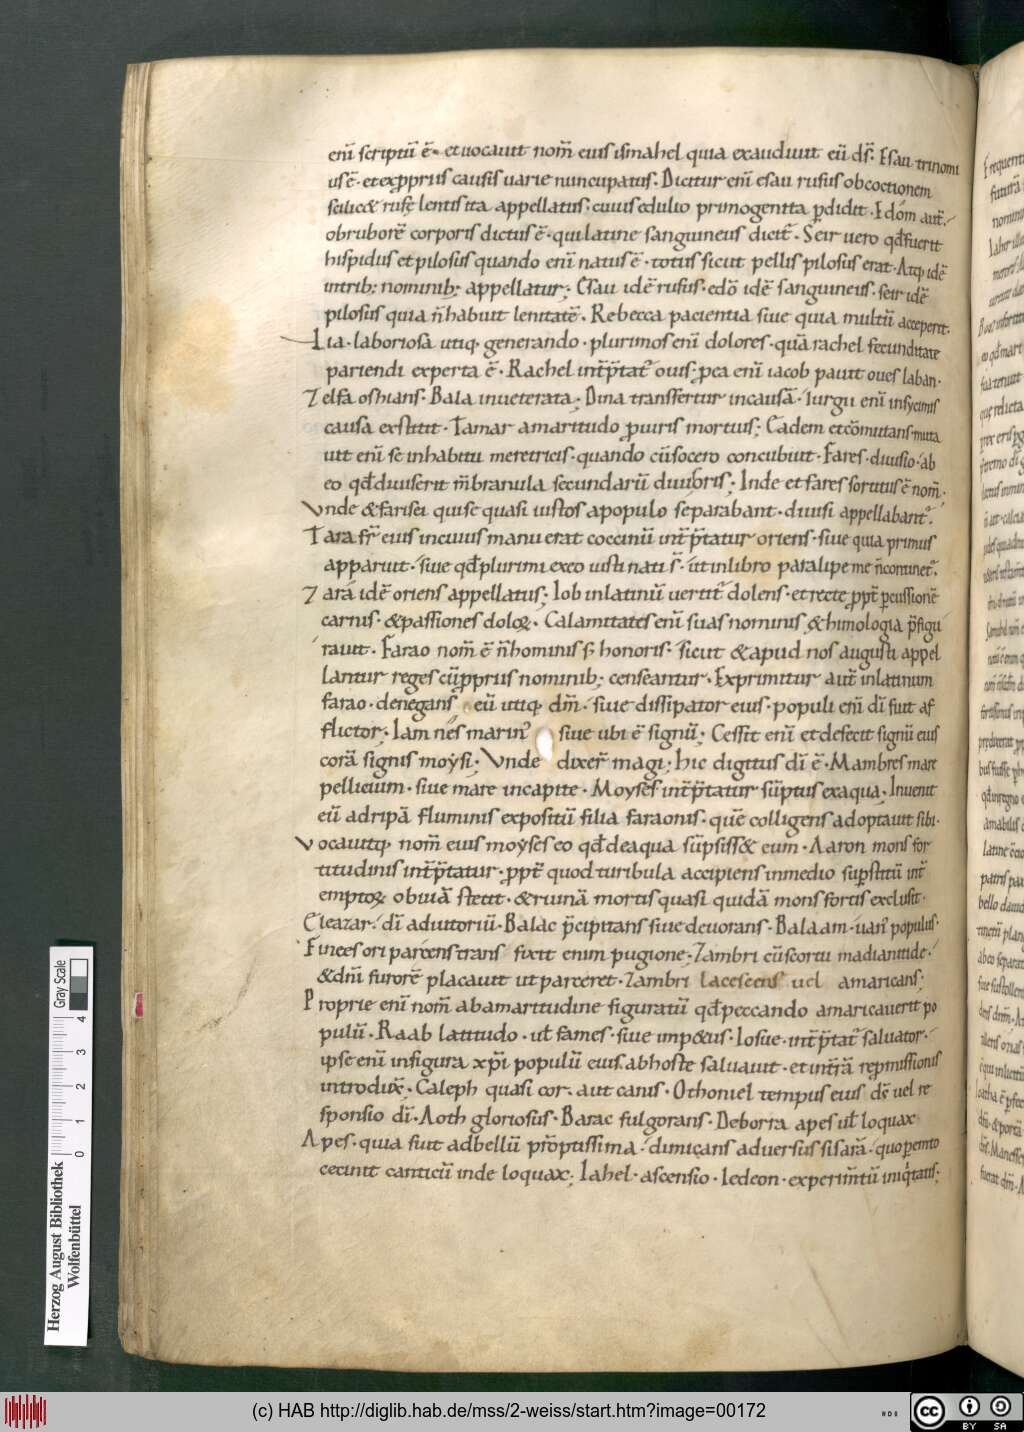 enī scriptū ē· et uocauit nom̄ eius ismahel quia exaudiuit eū d̄s· Esau trinomi
us ē· et ex pprius causis uarie nuncupatus· Dicitur enī esau rufus ob coctionem
scilic& rufę lentis ita appellatus· cuius edulio primogenita p̄didit· Edóm aut̄·
ob ruborē corporis dictus ē· qui latine sanguineus dicit̄· Seir uero qđ fuerit
hispidus et pilosus quando enī natus ē· totus sicut pellis pilosus erat· Atq; idē
in trib; nominib; appellatur; Esau idē rufus· edō idē sanguineus· seir idē
pilosus quia n̄ habuit lenitatē· Rebecca pacientia siue quia multū acceperit·
Lia· laboriosa utiq· generando· plurimos enī dolores· quā rachel fecunditate
pariendi experta ē· Rachel int̄p̄tat̄ ouis· p ea enī iacob pauit oues laban·
Zelfa os hians· Bala inueterata; Dina transfertur in causā· Iurgii enī in sycimis
causa exstitit· Tamar amaritudo p uiris mortuis; Eadem et cōmutans· muta
uit enī se in habitu meretricis· quando cū socero concubuit· Fares· diuisio· ab
eo qđ diuiserit m̄branula secundarū diuisoris; Inde et fares sortitus ē nom̄;
Vnde & farisei qui se quasi iustos a populo separabant· diuisi appellabant̄·
Tara fr̄ eius in cuius manu erat coccinū int̄p̄tatur oriens· siue quia primus
apparuit· siue qđ plurimi ex eo iusti nati s̄· ut in libro paralipemen̄ continet̄·
Zará idē oriens appellatus; Iob in latinū uertit̄ dolens· et recte ppt̄ pcussionē
carnis· & passiones doloꝝ· Calamitates enī suas nominis &himologia p̄figu
rauit· Farao nom̄ ē n̄ hominis s; honoris· sicut & apud nos augusti appel
lantur reges cū pprius nominib; censeantur· Exprimitur aut̄ in latinum
farao· denegans eū utiq; dm̄· siue dissipator eius· populi enī dī fuit af
flictor; Iamnes marin̄ siue ubi ē signū; Cessit enī et defecit signū eius
corā signis moẏsi; Vnde dixer̄ magi; hic digitus dī ē· Mambres mare
pelliceum· siue mare in capite· Moẏses int̄p̄tatur sūptus ex aqua· Inuenit
eū ad ripā fluminis expositū filia faraonis· quē colligens adoptauit sibi·
vocauitq; nom̄ eius moẏses eo qđ de aqua sūpsiss& eum· Aaron mons for
titudinis int̄p̄tatur· ppt̄ quod turibula accipiens in medio sup̄stitū int̄
emptoꝝ obuiā stetit· & ruinā mortis quasi quidā mons fortis exclusit·
Eleazar· dī adiutoriū· Balac p̄cipitans siue deuorans· Balaam· uan̄ populus·
Finees ori parcens trans fixit enim pugione; Zambri cū scortu madianitide·
& dn̄i furorē placauit ut parceret· Zambri lacescens uel amaricans;
Proprie enī nom̄ ab amaritudine figuratū qđ peccando amaricauerit po
pulū· Raab latitudo· uł fames· siue imp&us· Iosue· int̄p̄tat̄ saluator·
ipse enī in figura xp̄i populū eius ab hoste saluauit· et in t̄rā rep̄missionis
introdux̄· Caleph quasi cor· aut canis· Othoniel tempus eius d̄s uel re
sponsio dī· Aoth gloriosus· Barac fulgorans· Deborra apes uł loquax·
Apes· quia fuit ad bellū prōptissima· dimicans aduersus sisarā· quo perēmto
cecinit canticū inde loquax; Iahel· ascensio· Iedeon· experim̄tū iniq̄tatis;
Herzog August Bibliothek
Wolfenbüttel
Gray Scale
0 1 2 3 4
(c) HAB http://diglib.hab.de/mss/2-weiss/start.htm?image=00172
HDS
cc BY SA